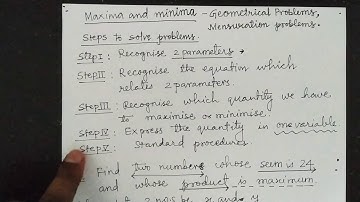 Maxima and minima - Geomctrical Problems,
Mensuration problems.
Steps to solve problems.
Step I : Recognise 2 parameters.
Step II : Recognise the equation which
relates 2 parameters.
Step III : Recognise which quantity we have
to maximise or minimise.
Step IV : Express the quantity in one variable
Step V : Standard procedures.
Find two numbers whose sum is 24
and whose product is maximum